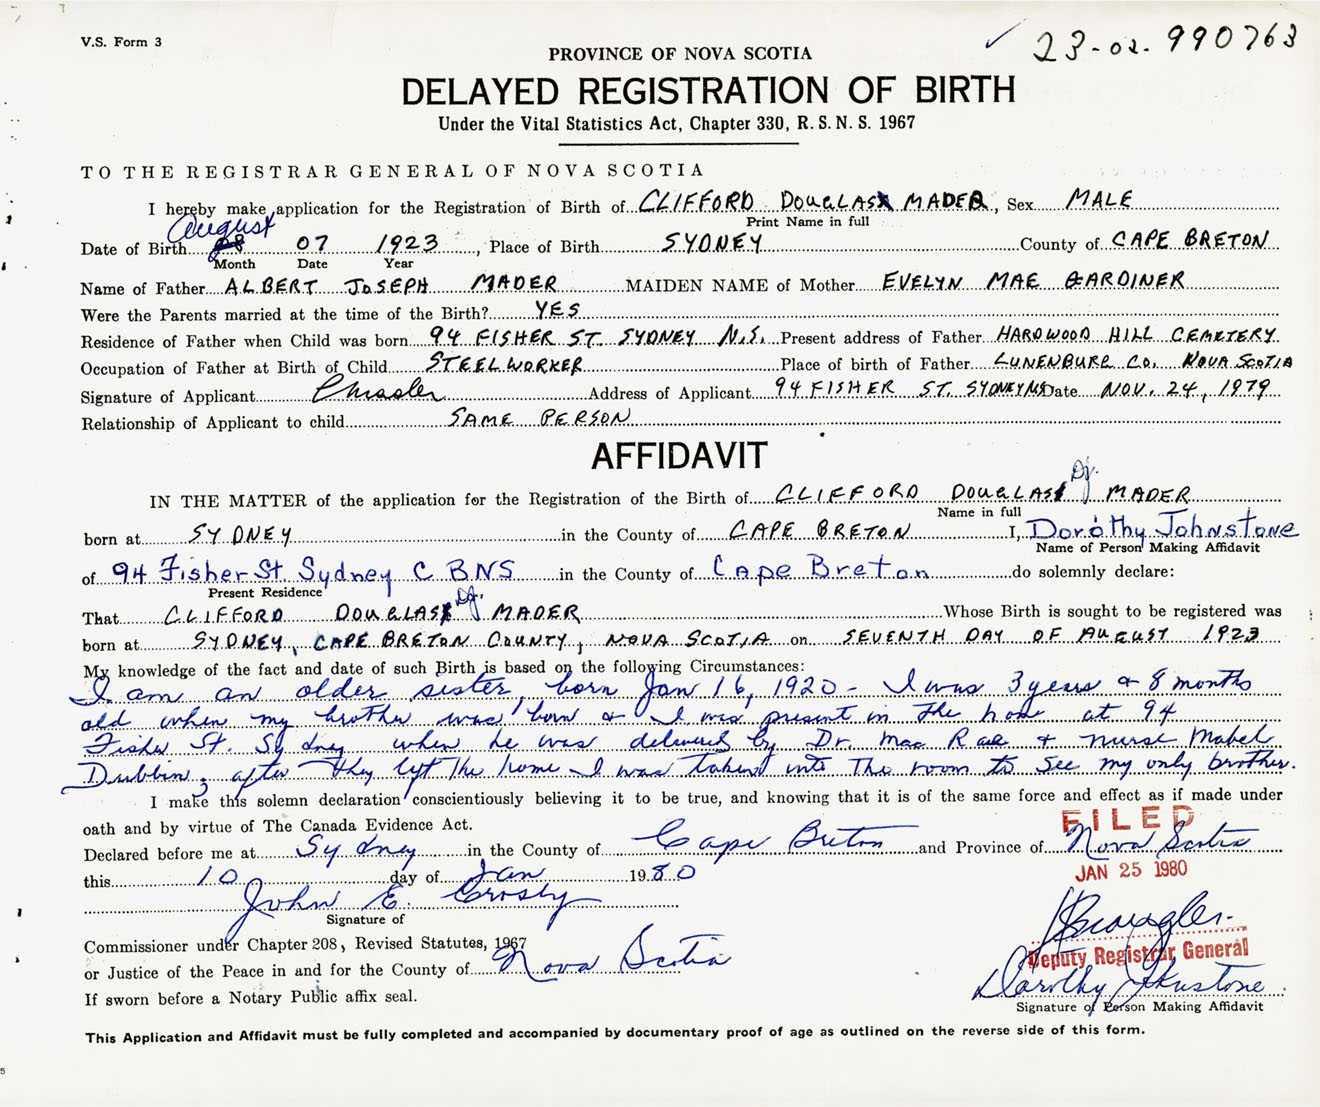 V.S. Form 3
23-02-990763
PROVINCE OF NOVA SCOTIA
DELAYED REGISTRATION OF BIRTH
Under the Vital Statistics Act, Chapter 330, R.S.N.S. 1967
TO THE REGISTRAR GENERAL OF NOVA SCOTIA
I hereby make application for the Registration of Birth of CLIFFORD DOUGLAS MADER, Sex MALE
Print Name in full
August
Date of Birth 08 07 1923, Place of Birth SYDNEY County of CAPE BRETON
Month Date Year
Name of Father ALBERT JOSEPH MADER MAIDEN NAME of Mother EVELYN MAE GARDINER
Were the Parents married at the time of the Birth? YES
Residence of Father when Child was born 94 FISHER ST. SYDNEY N.S. Present address of Father HARDWOOD HILL CEMETERY
Occupation of Father at Birth of Child STEELWORKER Place of birth of Father LUNENBURG CO. NOVA SCOTIA
Signature of Applicant Address of Applicant 94 FISHER ST. SYDNEY NS Date NOV. 24, 1979
Relationship of Applicant to child SAME PERSON
AFFIDAVIT
DJ.
IN THE MATTER of the application for the Registration of the Birth of CLIFFORD DOUGLAS MADER
Name in full
born at SYDNEY in the County of CAPE BRETON I, Dorothy Johnstone
Name of Person Making Affidavit
of 94 Fisher St. Sydney C BNS in the County of Cape Breton do solemnly declare:
Present Residence
That CLIFFORD DOUGLAS DJ. MADER Whose Birth is sought to be registered was
born at SYDNEY, CAPE BRETON COUNTY, NOVA SCOTIA on SEVENTH DAY OF AUGUST 1923
My knowledge of the fact and date of such Birth is based on the following Circumstances:
I am an older sister, born Jan 16, 1920 - I was 3 years & 8 months
old when my brother was born & I was present in the home at 94
Fisher St. Sydney when he was delivered by Dr. Mac Rae & nurse Mabel
Dubbin, after they left the home I was taken into the room to see my only brother.
I make this solemn declaration conscientiously believing it to be true, and knowing that it is of the same force and effect as if made under
oath and by virtue of The Canada Evidence Act.
FILED
Declared before me at Sydney in the County of Cape Breton and Province of Nova Scotia
JAN 25 1980
this 10 day of Jan 1980
John E. Crosby
Signature of
Commissioner under Chapter 208, Revised Statutes, 1967
Deputy Registrar General
or Justice of the Peace in and for the County of Nova Scotia
Dorothy Johnstone
If sworn before a Notary Public affix seal.
Signature of Person Making Affidavit
This Application and Affidavit must be fully completed and accompanied by documentary proof of age as outlined on the reverse side of this form.
5